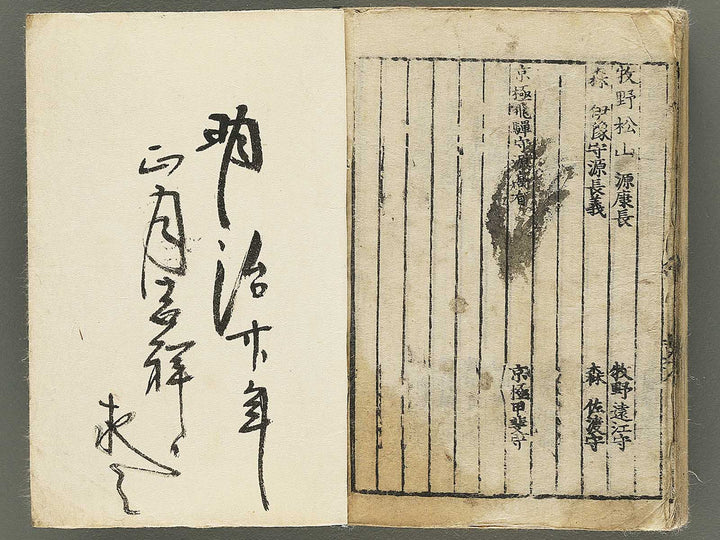 牧野松山 源康長 牧野遠江守
森 伊豫守源長義 森 佐渡守
京極飛騨守源高有 京極甲斐守
明治年
正月吉祥
求之